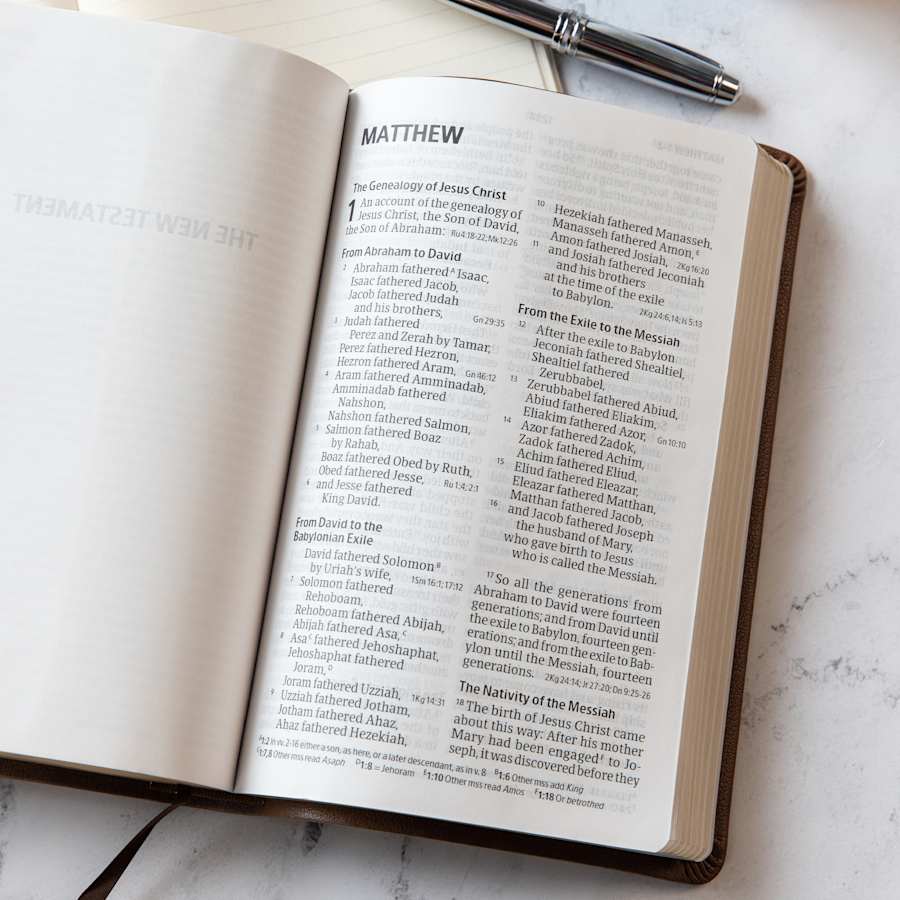 THE NEW TESTAMENT
MATTHEW
The Genealogy of Jesus Christ
1 An account of the genealogy of
Jesus Christ, the Son of David,
the Son of Abraham: Ru 4:18-22; Mk 12:26
From Abraham to David
2 Abraham fathered A Isaac,
Isaac fathered Jacob,
Jacob fathered Judah
and his brothers, Gn 29:35
3 Judah fathered
Perez and Zerah by Tamar,
Perez fathered Hezron,
Hezron fathered Aram, Gn 46:12
4 Aram fathered Amminadab,
Amminadab fathered
Nahshon,
Nahshon fathered Salmon,
5 Salmon fathered Boaz
by Rahab,
Boaz fathered Obed by Ruth,
Obed fathered Jesse, Ru 1:4; 2:1
6 and Jesse fathered
King David.
From David to the
Babylonian Exile
David fathered Solomon B
by Uriah's wife, 1Sm 16:1; 17:12
7 Solomon fathered
Rehoboam,
Rehoboam fathered Abijah,
Abijah fathered Asa, C
8 Asa C fathered Jehoshaphat,
Jehoshaphat fathered
Joram, D
Joram fathered Uzziah, 1Kg 14:31
9 Uzziah fathered Jotham,
Jotham fathered Ahaz,
Ahaz fathered Hezekiah,
10 Hezekiah fathered Manasseh,
Manasseh fathered Amon, E
Amon fathered Josiah, 2Kg 16:20
11 and Josiah fathered Jeconiah
and his brothers
at the time of the exile
to Babylon. 2Kg 24:6,14; Is 5:13
From the Exile to the Messiah
12 After the exile to Babylon
Jeconiah fathered Shealtiel,
Shealtiel fathered
Zerubbabel,
13 Zerubbabel fathered Abiud,
Abiud fathered Eliakim,
Eliakim fathered Azor, Gn 10:10
14 Azor fathered Zadok,
Zadok fathered Achim,
Achim fathered Eliud,
15 Eliud fathered Eleazar,
Eleazar fathered Matthan,
Matthan fathered Jacob,
16 and Jacob fathered Joseph
the husband of Mary,
who gave birth to Jesus
who is called the Messiah.
17 So all the generations from
Abraham to David were fourteen
generations; and from David until
the exile to Babylon, fourteen gen-
erations; and from the exile to Bab-
ylon until the Messiah, fourteen
generations. 2Kg 24:14; Jr 27:20; Dn 9:25-26
The Nativity of the Messiah
18 The birth of Jesus Christ came
about this way: After his mother
Mary had been engaged F to Jo-
seph, it was discovered before they
A 1:2 In vv. 2-16 either a son, as here, or a later descendant, as in v. 8 B 1:6 Other mss add King
C 1:7,8 Other mss read Asaph D 1:8 = Jehoram E 1:10 Other mss read Amos F 1:18 Or betrothed